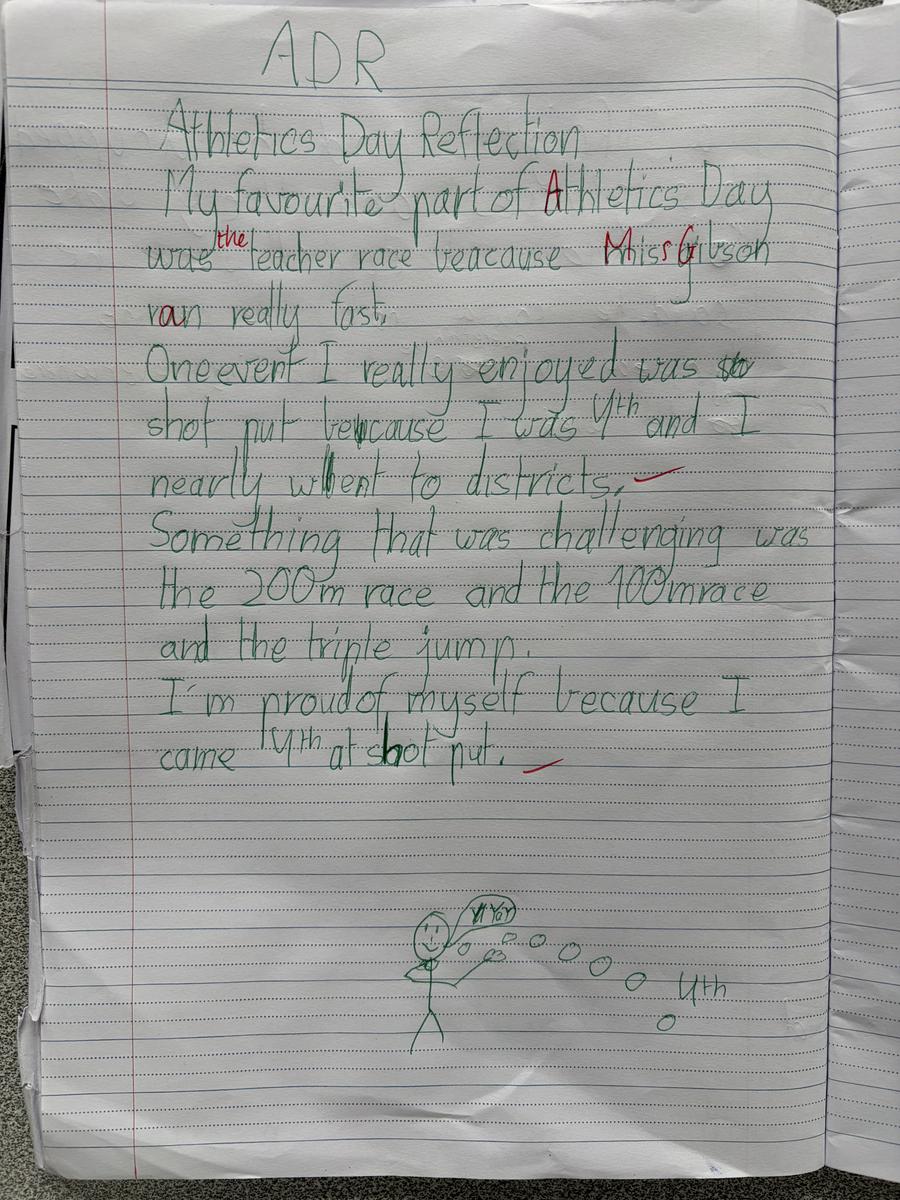 ADR
Athletics Day Reflection
My favourite part of Athletics Day
was the teacher race beacause Miss Gibson
ran really fast.
One event I really enjoyed was
shot put because I was 4th and I
nearly whent to districts.
Something that was challenging was
the 200m race and the 100m race
and the triple jump.
I'm proud of myself because I
came 4th at shot put.
Yay
4th